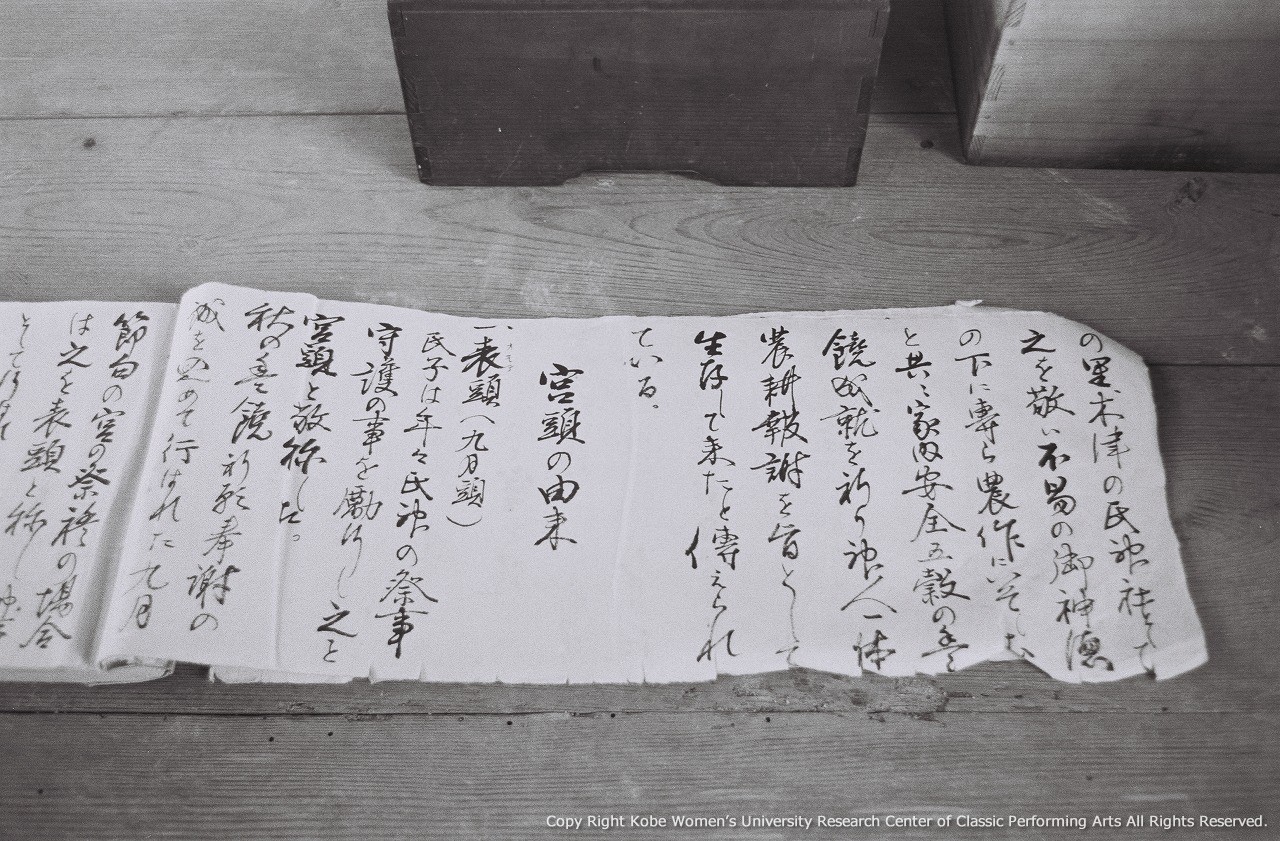 の里木津の氏神社として
之を敬い不易の御神徳
の下に専ら農作にいそしむ
と共に家内安全五穀の豊
饒成就を祈り神人一体
農耕報謝を旨として
生存して来たと傳えられ
ている。
宮頭の由来
一、表頭(九月頭)
オモテ
氏子は年々氏神の祭事
守護の事を励行し之を
宮頭と敬称した。
秋の豊饒祈願奉謝の
誠を込めて行はれた九月
節句の宮の祭禮の場合
は之を表頭と称し
Copy Right Kobe Women's University Research Center of Classic Performing Arts All Rights Reserved.